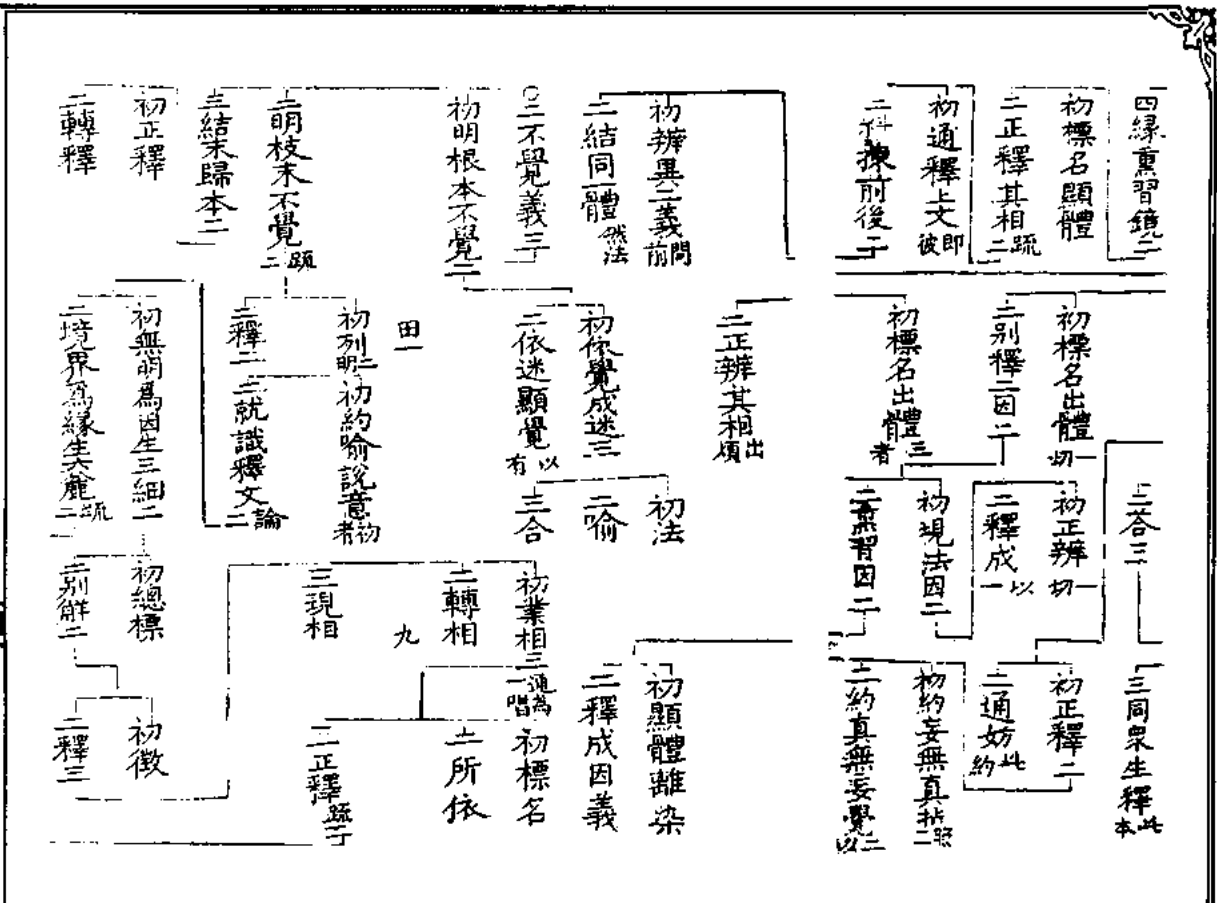 四緣熏習鏡二
初標名顯體
二正釋其相二疏
初通釋上文彼即
二科揀前後二
初辨異二義前問
二結同一體然法
○二不覺義三
初明根本不覺二
二明枝末不覺二疏
三結末歸本二
初正釋
二轉釋
初標名出體一切
二別釋二因二
初標名出體三者
二正辨其相出煩
初依覺成迷三
二依迷顯覺有以
田一
初列明二
二釋二
初約喻說意者初
二就識釋文二論
初無明為因生三細二
二境界為緣生六麄二疏
二答三
初正辨一切
二釋成一以
初現法因二
二熏習因二
初法
二喻
三合
初業相三
二轉相
三現相
九
初總標
二別解二
三同眾生釋本此
初正釋二
二通妨約此
初約妄無真
二約真無妄覺
初顯體離染
二釋成因義
通為一唱
初標名
二所依
二正釋
初徵
二釋三